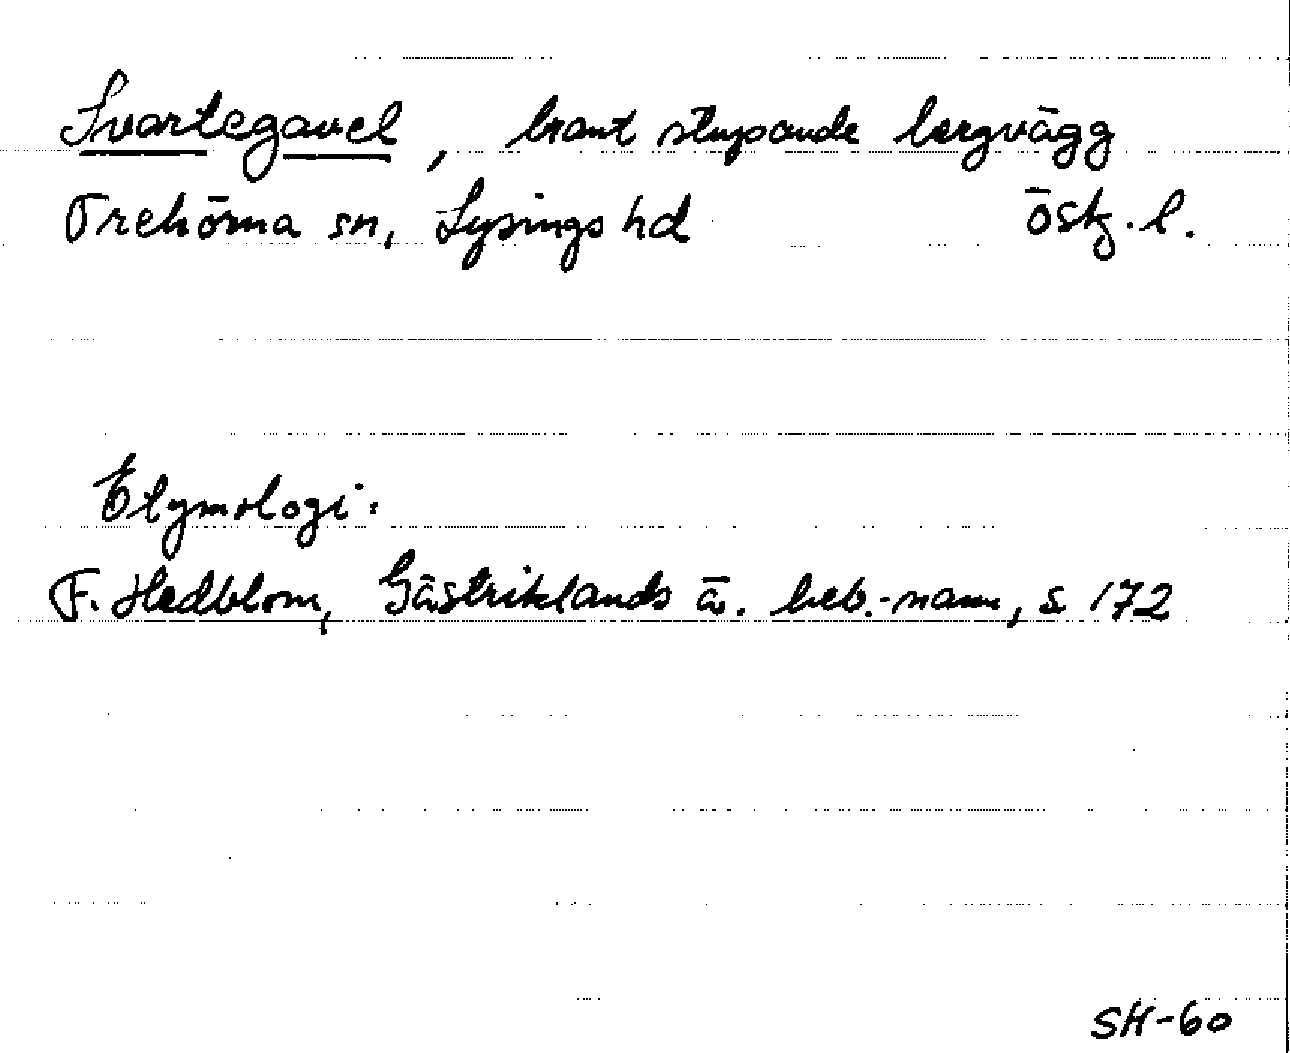 Svartegavel, brant stupande bergvägg
Trehörna sn, Lysings hd östg. l.
Etymologi:
F. Hedblom, Gästriklands ä. beb.-namn, s 172
SH-60